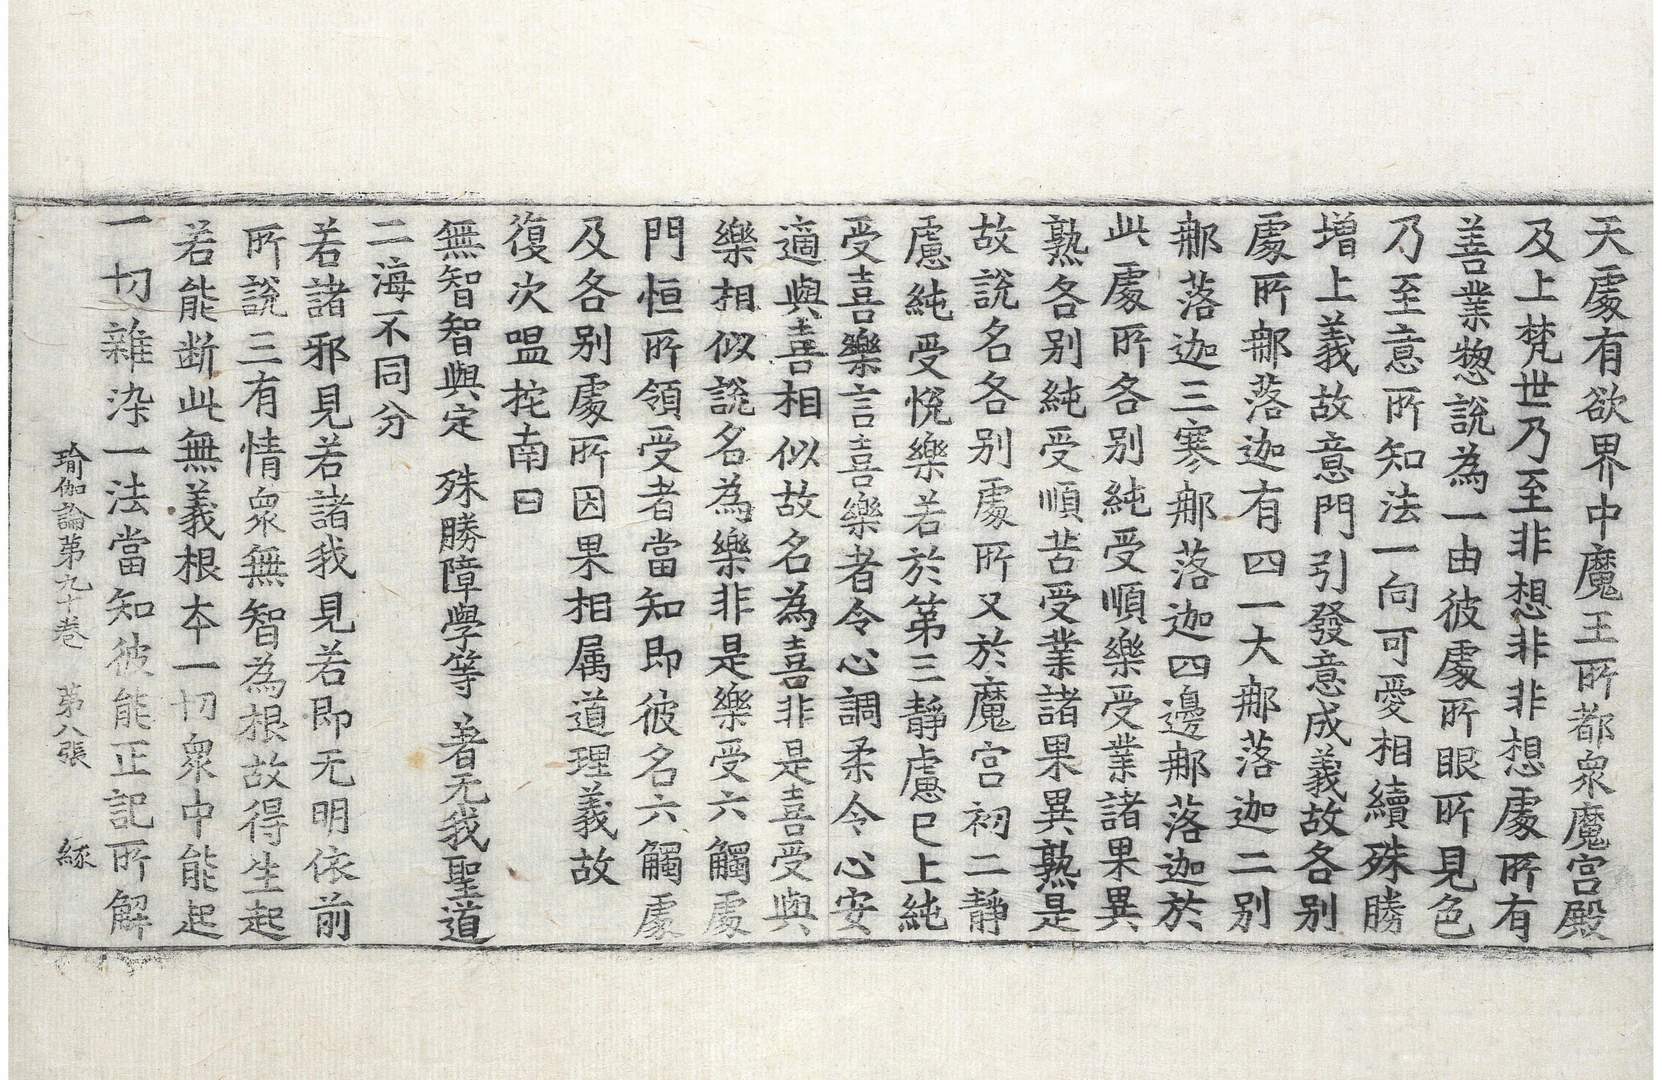 天處有欲界中魔王所都衆魔宮殿
及上梵世乃至非想非非想處所有
善業惣說為一由彼處所眼所見色
乃至意所知法一向可愛相續殊勝
增上義故意門引發意成義故各別
處所那落迦有四一大那落迦二別
那落迦三寒那落迦四邊那落迦於
此處所各別純受順樂受業諸果異
熟各別純受順苦受業諸果異熟是
故說名各別處所又於魔宮初二靜
慮純受悅樂若於第三靜慮已上純
受喜樂言喜樂者令心調柔令心安
適與喜相似故名為喜非是喜受與
樂相似說名為樂非是樂受六觸處
門恒所領受者當知即彼名六觸處
及各別處所因果相属道理義故
復次嗢拕南曰
無智智與定 殊勝障學等 著无我聖道
二海不同分
若諸邪見若諸我見若即无明依前
所說三有情衆無智為根故得生起
若能断此無義根本一切衆中能起
一切雜染一法當知彼能正記所解
瑜伽論第九十卷 第八張 綠